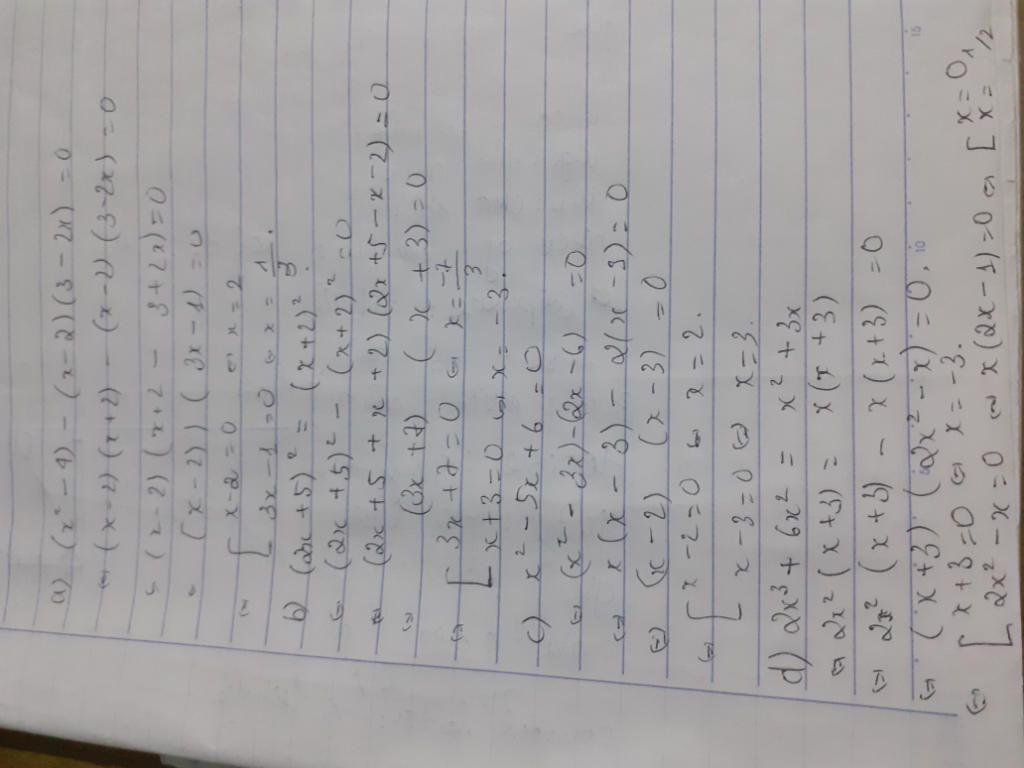 a) (x² - 4) - (x - 2)(3 - 2x) = 0
⇔ (x - 2)(x + 2) - (x - 2)(3 - 2x) = 0
⇔ (x - 2)(x + 2 - 3 + 2x) = 0
⇔ (x - 2)(3x - 1) = 0
⇔ [ x - 2 = 0 ⇔ x = 2
3x - 1 = 0 ⇔ x = 1/3.
b) (2x + 5)² = (x + 2)²
⇔ (2x + 5)² - (x + 2)² = 0
⇔ (2x + 5 + x + 2)(2x + 5 - x - 2) = 0
⇔ (3x + 7) (x + 3) = 0
⇔ [ 3x + 7 = 0 ⇔ x = -7/3
x + 3 = 0 ⇔ x = -3.
c) x² - 5x + 6 = 0
⇔ (x² - 3x) - (2x - 6) = 0
⇔ x(x - 3) - 2(x - 3) = 0
⇔ (x - 2) (x - 3) = 0
⇔ [ x - 2 = 0 ⇔ x = 2.
x - 3 = 0 ⇔ x = 3.
d) 2x³ + 6x² = x² + 3x
⇔ 2x² (x + 3) = x(x + 3)
⇔ 2x² (x + 3) - x(x + 3) = 0
⇔ (x + 3) (2x² - x) = 0.
⇔ [ x + 3 = 0 ⇔ x = -3.
2x² - x = 0 ⇔ x(2x - 1) = 0 ⇔ [ x = 0
x = 1/2
10
15